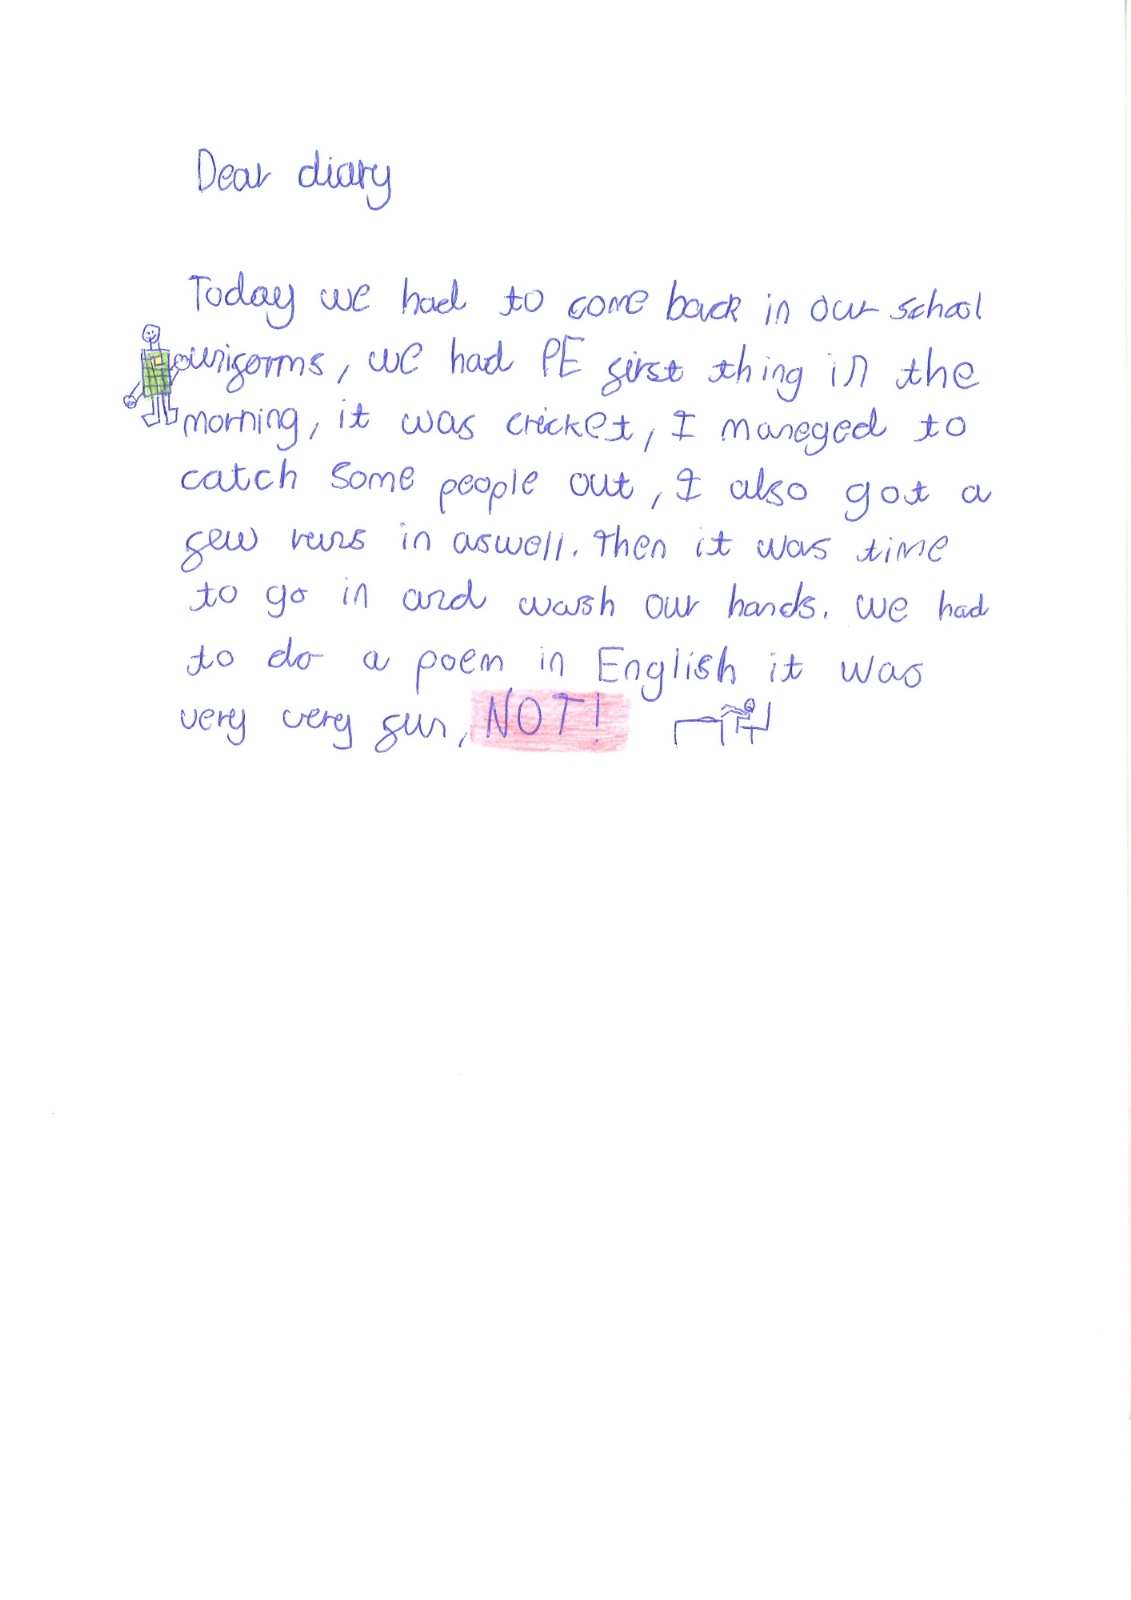 Dear diary
Today we had to come back in our school
unigorms, we had PE girst thing in the
morning, it was cricket, I maneged to
catch some people out, I also got a
gew runs in aswell. Then it was time
to go in and wash our hands. We had
to do a poem in English it was
very very gun, NOT!